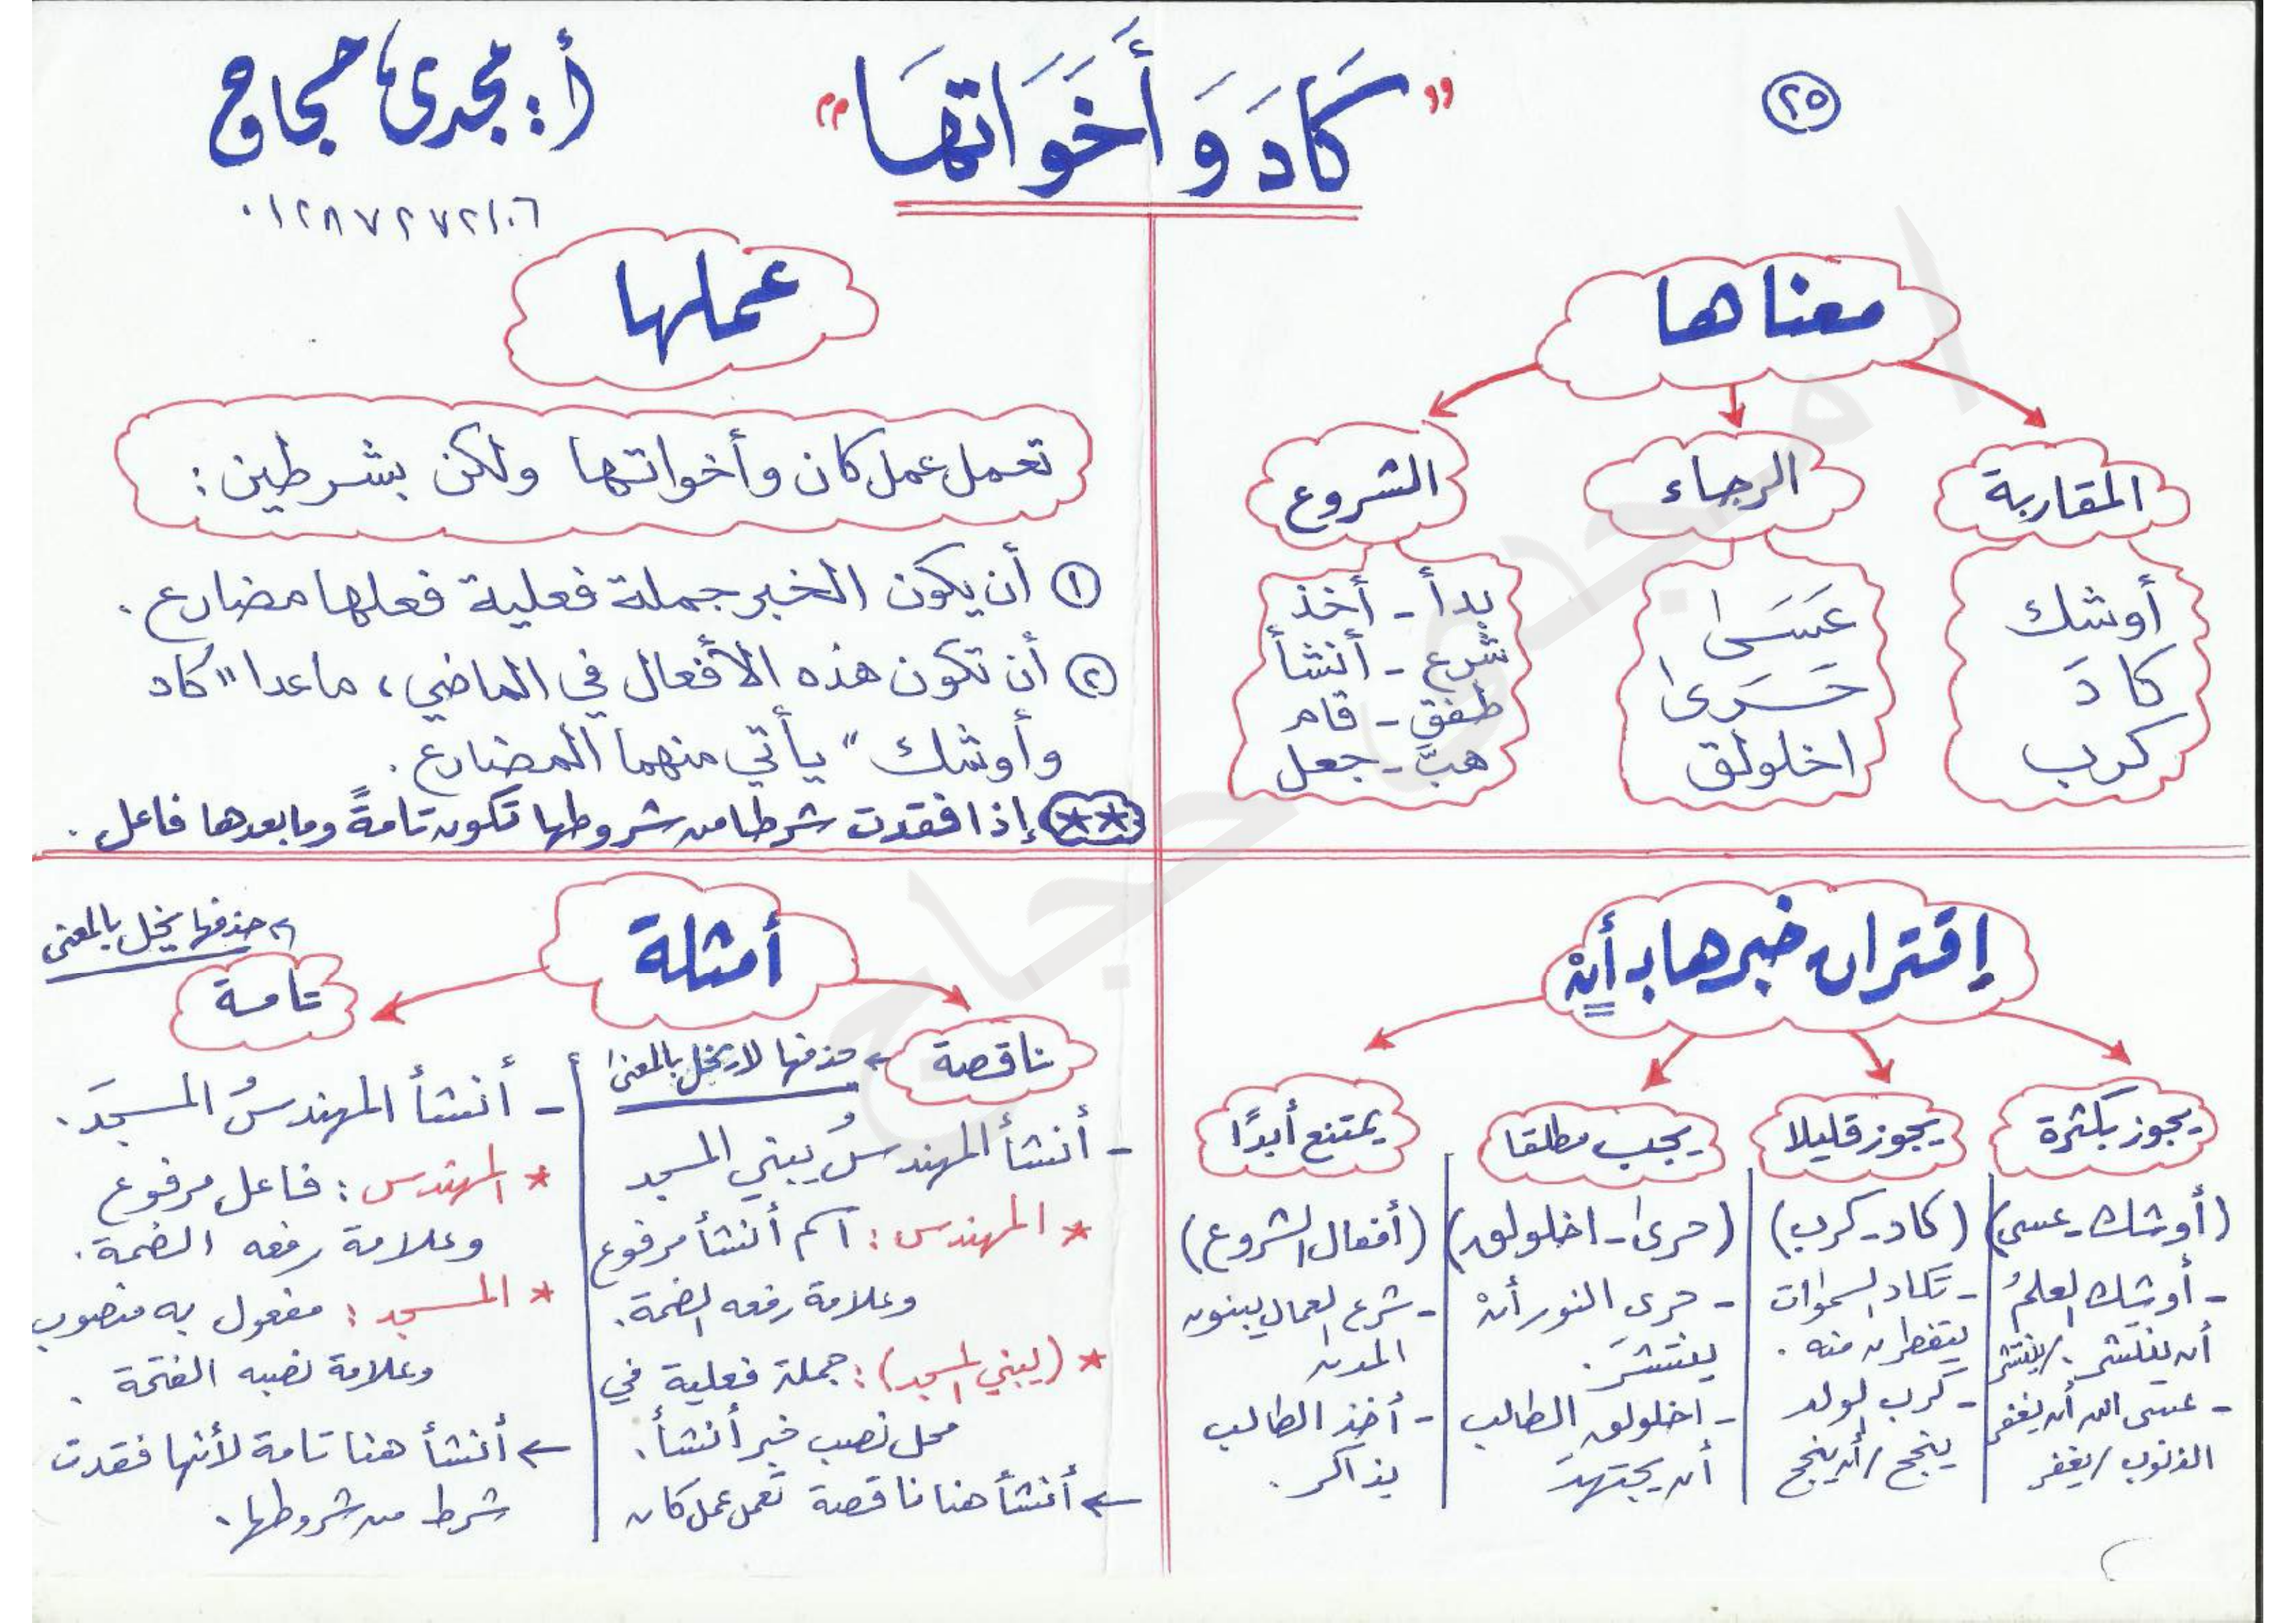 ٢٥
"كَادَ وَأَخَوَاتهَا"
أ: مجدى حجاج
٠١٢٨٧٢٧٢١٠٦
معناها
المقاربة
أوشك
كادَ
كرب
الرجاء
عَسَى
حَرَى
اخلولق
الشروع
بدأ - أخذ
شرع - أنشأ
طفق - قام
هبَّ - جعل
عملها
تعمل عمل كان وأخواتها ولكن بشرطين:
① أن يكون الخبر جملة فعلية فعلها مضارع.
② أن تكون هذه الأفعال في الماضي، ماعدا "كاد
وأوشك" يأتي منهما المضارع.
** إذا فقدت شرطا من شروطها تكون تامةً وما بعدها فاعل.
إقتران خبرها بـ أنْ
يجوز بكثرة
(أوشك - عسى)
- أوشك العلمُ
أن ينتشر. / ينتشر
- عسى الله أن يغفر
الذنوب / يغفر
يجوز قليلا
(كاد - كرب)
- تكاد السموات
يتفطرن منه.
- كرب الولد
ينجح / أن ينجح
يجب مطلقا
(حرى - اخلولق)
- حرى النور أنْ
ينتشرَ.
- اخلولق الطالب
أن يجتهدَ
يمتنع أبدًا
(أفعال الشروع)
- شرع العمال يبنون
المدن
- أخذ الطالب
يذاكر.
أمثلة
ناقصة
← حذفها لا يخل بالمعنى
- أنشأ المهندسُ يبني المسجد
* المهندس: اسم أنشأ مرفوع
وعلامة رفعه الضمة.
* (يبني المسجد): جملة فعلية في
محل نصب خبر أنشأ.
← أنشأ هنا ناقصة تعمل عمل كان
تامة
← حذفها يخل بالمعنى
- أنشأ المهندسُ المسجدَ.
* المهندس: فاعل مرفوع
وعلامة رفعه الضمة.
* المسجد: مفعول به منصوب
وعلامة نصبه الفتحة.
← أنشأ هنا تامة لأنها فقدت
شرط من شروطها.
أ مجدى حجاج